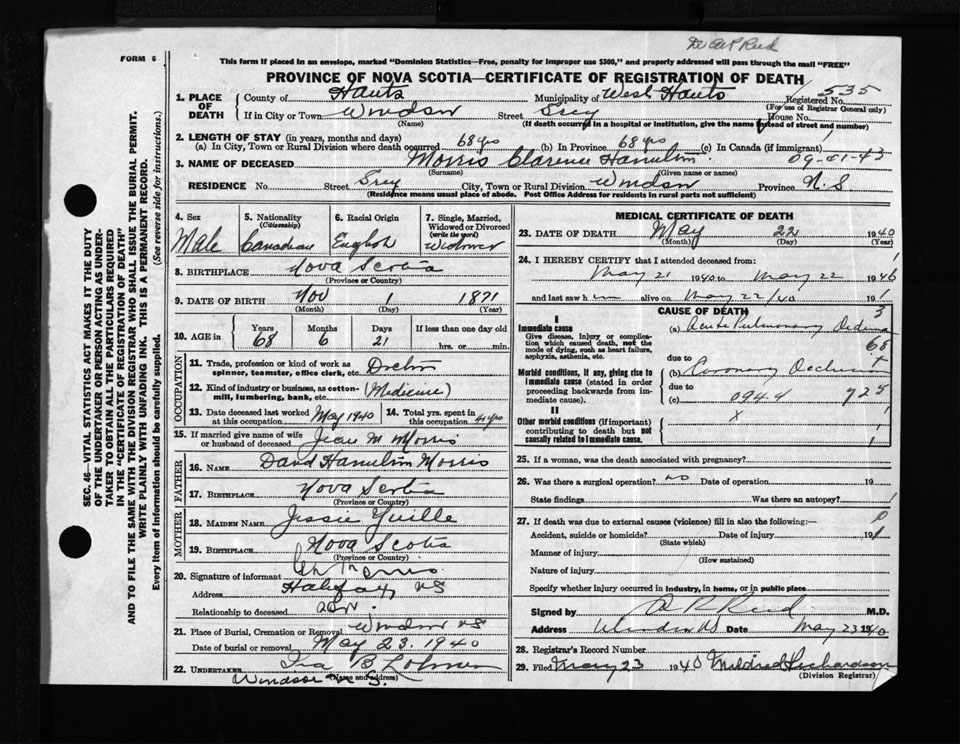 Dr A R Reid
FORM 6
This form if placed in an envelope, marked "Dominion Statistics—Free, penalty for improper use $300," and properly addressed will pass through the mail "FREE"
PROVINCE OF NOVA SCOTIA—CERTIFICATE OF REGISTRATION OF DEATH
1. PLACE OF DEATH
County of Hants Municipality of West Hants Registered No. 535
(For use of Registrar General only)
If in City or Town Windsor Street Grey House No.
(Name) (If death occurred in a hospital or institution, give the name instead of street and number)
2. LENGTH OF STAY (in years, months and days)
(a) In City, Town or Rural Division where death occurred 68 yrs (b) In Province 68 yrs (c) In Canada (if immigrant)
3. NAME OF DECEASED Morris Clarence Hamilton 09-01-43
(Surname) (Given name or names)
RESIDENCE No. Street Grey City, Town or Rural Division Windsor Province N.S
(Residence means usual place of abode. Post Office Address for residents in rural parts not sufficient)
4. Sex Male
5. Nationality (Citizenship) Canadian
6. Racial Origin English
7. Single, Married, Widowed or Divorced (write the word) Widower
8. BIRTHPLACE Nova Scotia
(Province or Country)
9. DATE OF BIRTH Nov 1 1871
(Month) (Day) (Year)
10. AGE in Years 68 Months 6 Days 21 If less than one day old hrs. or min.
OCCUPATION
11. Trade, profession or kind of work as spinner, teamster, office clerk, etc. Doctor
12. Kind of industry or business, as cotton-mill, lumbering, bank, etc. (Medicine)
13. Date deceased last worked at this occupation May 1940
14. Total yrs. spent in this occupation 44 yrs
15. If married give name of wife or husband of deceased Jean M Morris
FATHER
16. NAME David Hamilton Morris
17. BIRTHPLACE Nova Scotia
(Province or Country)
MOTHER
18. MAIDEN NAME Jessie Yuille
19. BIRTHPLACE Nova Scotia
(Province or Country)
20. Signature of informant Morris
Address Halifax, NS
Relationship to deceased son
21. Place of Burial, Cremation or Removal Windsor NS
Date of burial or removal May 23, 1940
22. UNDERTAKER Ira B Lohnes
Windsor N.S. (Name and address)
MEDICAL CERTIFICATE OF DEATH
23. DATE OF DEATH May 22 1940
(Month) (Day) (Year)
24. I HEREBY CERTIFY that I attended deceased from:
May 21 1940 to May 22 1940
and last saw him alive on May 22/40 19
CAUSE OF DEATH
I
Immediate cause
Give disease, injury or complication which caused death, not the mode of dying, such as heart failure, asphyxia, asthenia, etc.
(a) Acute Pulmonary Oedema
3
68
due to
Morbid conditions, if any, giving rise to immediate cause (stated in order proceeding backwards from immediate cause).
(b) Coronary
due to
(c) 094.4 925
II
Other morbid conditions (if important) contributing to death but not causally related to immediate cause.
X
25. If a woman, was the death associated with pregnancy?
26. Was there a surgical operation? no Date of operation 19
State findings Was there an autopsy?
27. If death was due to external causes (violence) fill in also the following:
Accident, suicide or homicide? Date of injury 19
(State which)
Manner of injury
(How sustained)
Nature of injury
Specify whether injury occurred in industry, in home, or in public place
Signed by A R Reid M.D.
Address Windsor NS Date May 23 1940
28. Registrar's Record Number
29. Filed May 23 1940 Mildred Richardson
(Division Registrar)
SEC. 46—VITAL STATISTICS ACT MAKES IT THE DUTY
OF THE UNDERTAKER OR PERSON ACTING AS UNDER-
TAKER TO OBTAIN ALL THE PARTICULARS REQUIRED
IN THE "CERTIFICATE OF REGISTRATION OF DEATH"
AND TO FILE THE SAME WITH THE DIVISION REGISTRAR WHO SHALL ISSUE THE BURIAL PERMIT.
WRITE PLAINLY WITH UNFADING INK. THIS IS A PERMANENT RECORD.
Every item of information should be carefully supplied. (See reverse side for instructions.)